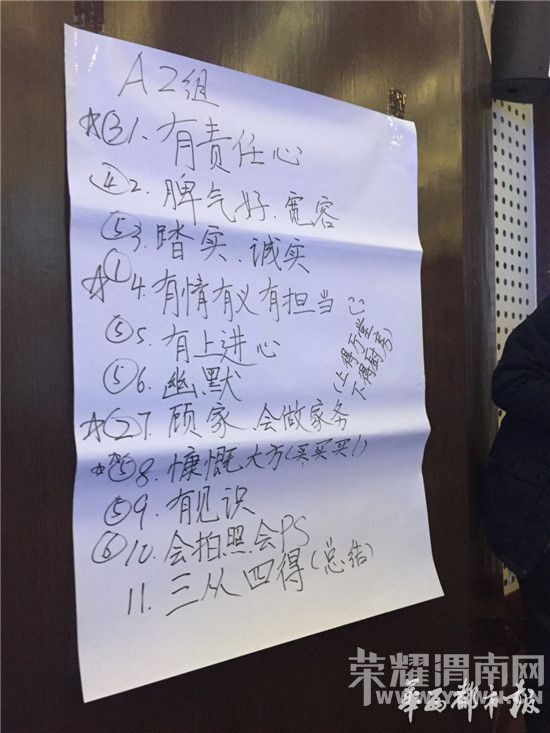 A2组
☆③1. 有责任心
④2. 脾气好.宽容
⑤3. 踏实.诚实
☆①4. 有情有义有担当
(上得厅堂
下得厨房)
⑤5. 有上进心
⑤6. 幽默
☆②7. 顾家.会做家务
☆⑤8. 慷慨大方(买买买!)
⑤9. 有见识
⑥10. 会拍照会PS
11. 三从四得(总结)
荣耀渭南网
华西都市报